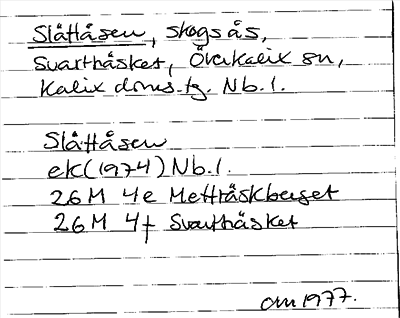 Slåttåsen, skogsås,
Svartträsket, Överkalix sn,
Kalix doms.tg. Nb.l.
Slåttåsen
ek(1974) Nb.l.
26M 4e Metträskberget
26M 4f Svartträsket
om 1977.